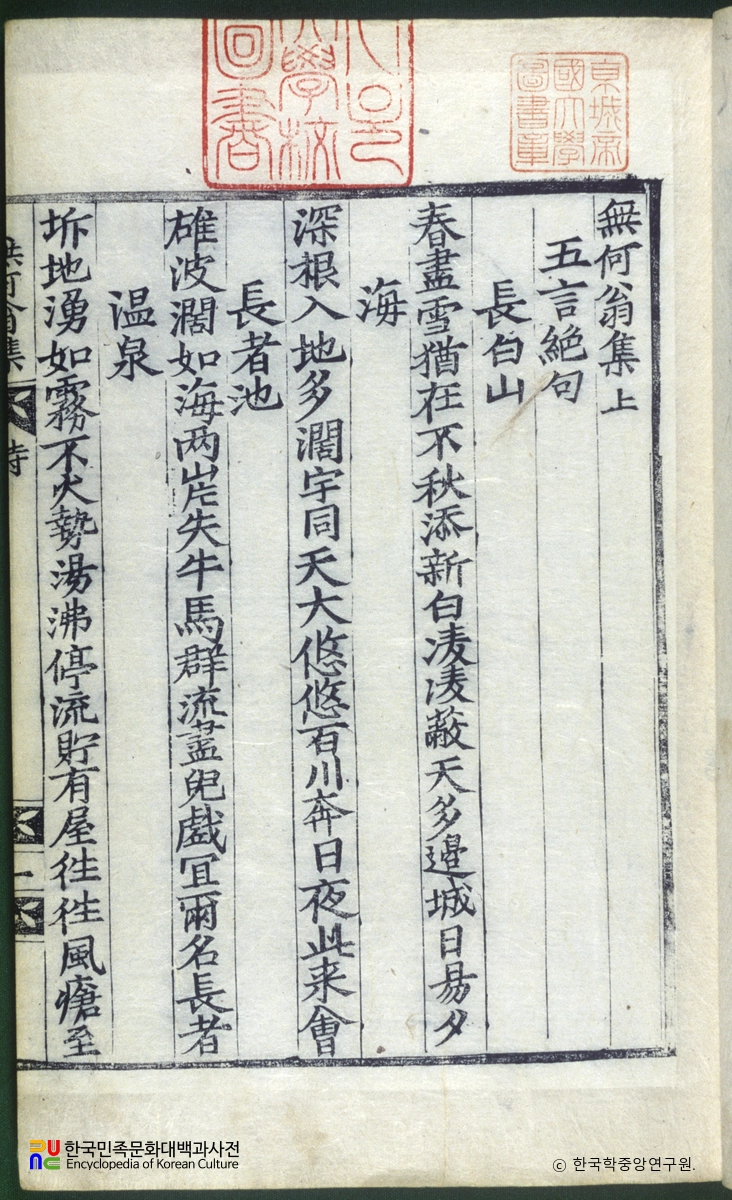 無何翁集上
五言絶句
長白山
春盡雪猶在不秋添新白凄凄蔽天多邊城日易夕
海
深根入地多濶宇同天大悠悠百川奔日夜此来會
長者池
雄波濶如海两岸失牛馬群流盡兒戯冝爾名長者
温泉
坼地湧如霧不火勢湯沸停流貯有屋徃徃風瘡至
無何翁集
詩
一
京城帝
國大學
圖書章
大學校
圖書
한국민족문화대백과사전
Encyclopedia of Korean Culture
ⓒ 한국학중앙연구원.